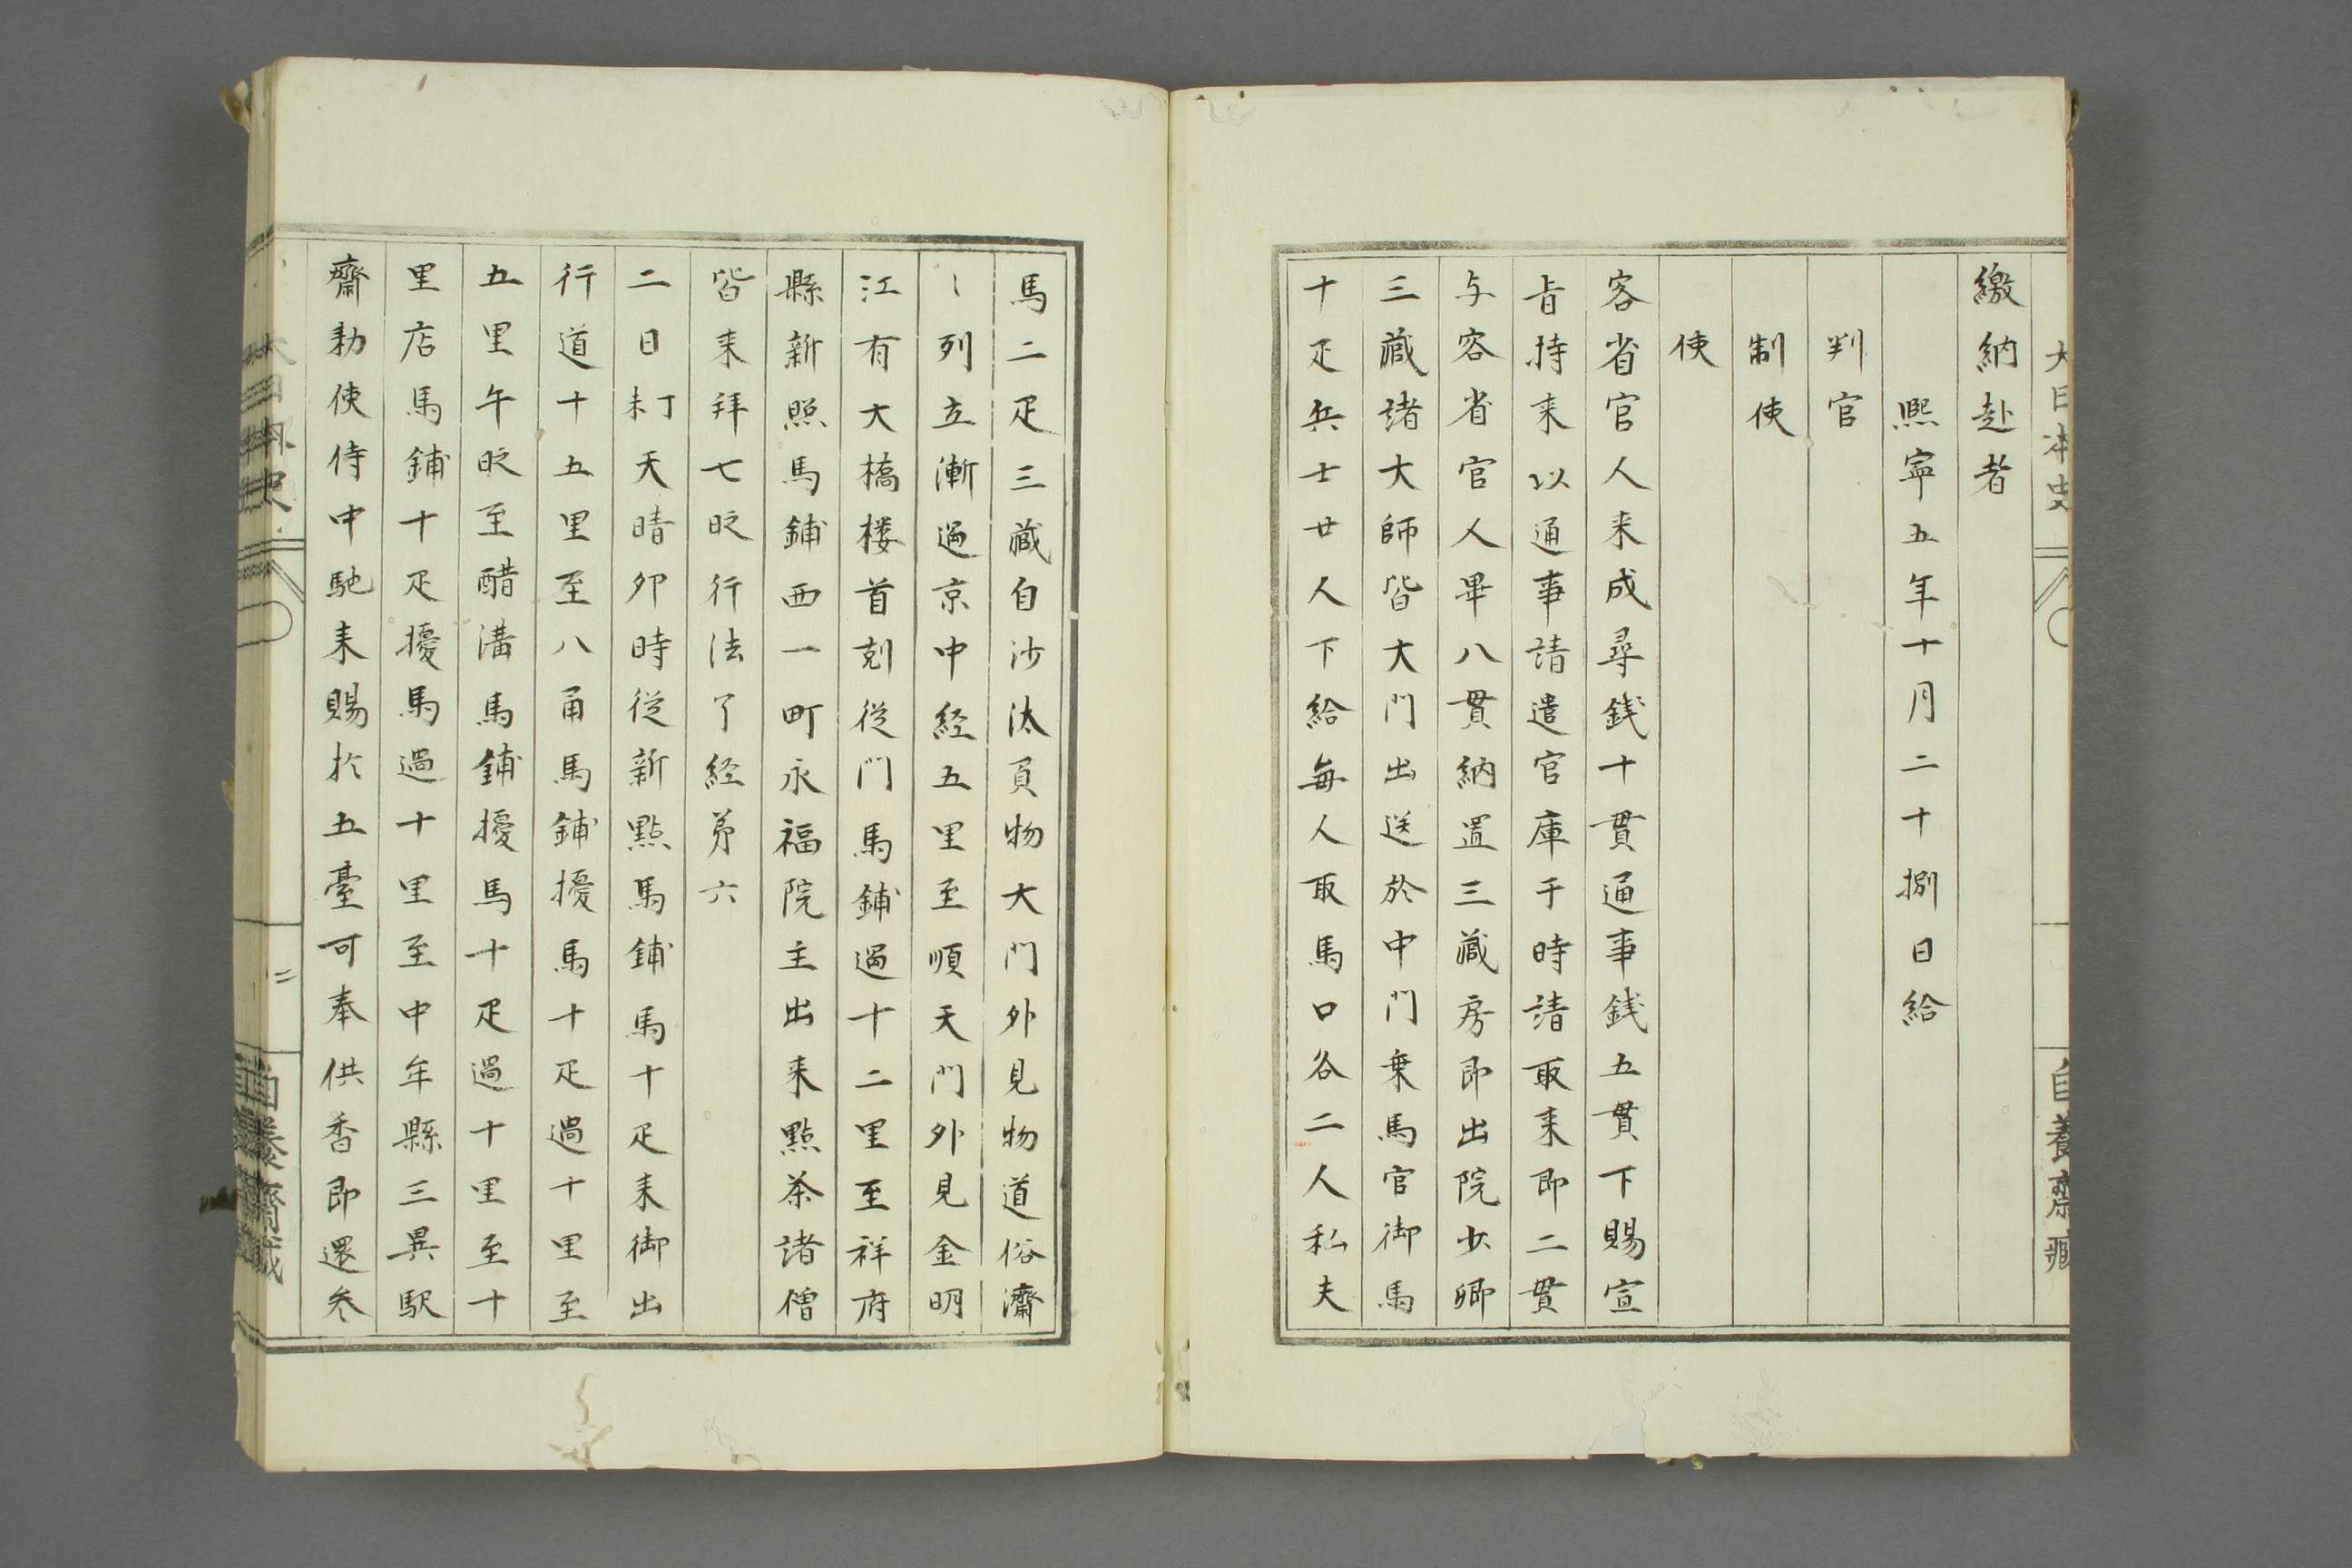 大日本史
自養齋藏
繳納赴者
熙寧五年十月二十捌日給
判官
制使
使
客省官人来成尋銭十貫通事銭五貫下賜宣
旨持来以通事請遣官庫于時請取来即二貫
与客省官人畢八貫納置三藏房即出院少卿
三藏諸大師皆大門出送於中門乗馬官御馬
十疋兵士廿人下給毎人取馬口各二人私夫
馬二疋三藏自沙汰員物大門外見物道俗濟
〻列立漸過京中経五里至順天門外見金明
江有大橋楼首剋従門馬鋪過十二里至祥府
縣新照馬鋪西一町永福院主出来點茶諸僧
皆来拜七時行法了経第六
二日丁未天晴卯時従新點馬鋪馬十疋来御出
行道十五里至八甬馬鋪擾馬十疋過十里至
五里午時至醋溝馬鋪擾馬十疋過十里至十
里店馬鋪十疋擾馬過十里至中牟縣三異駅
齋勅使侍中馳来賜於五臺可奉供香即還參
二
自養齋藏